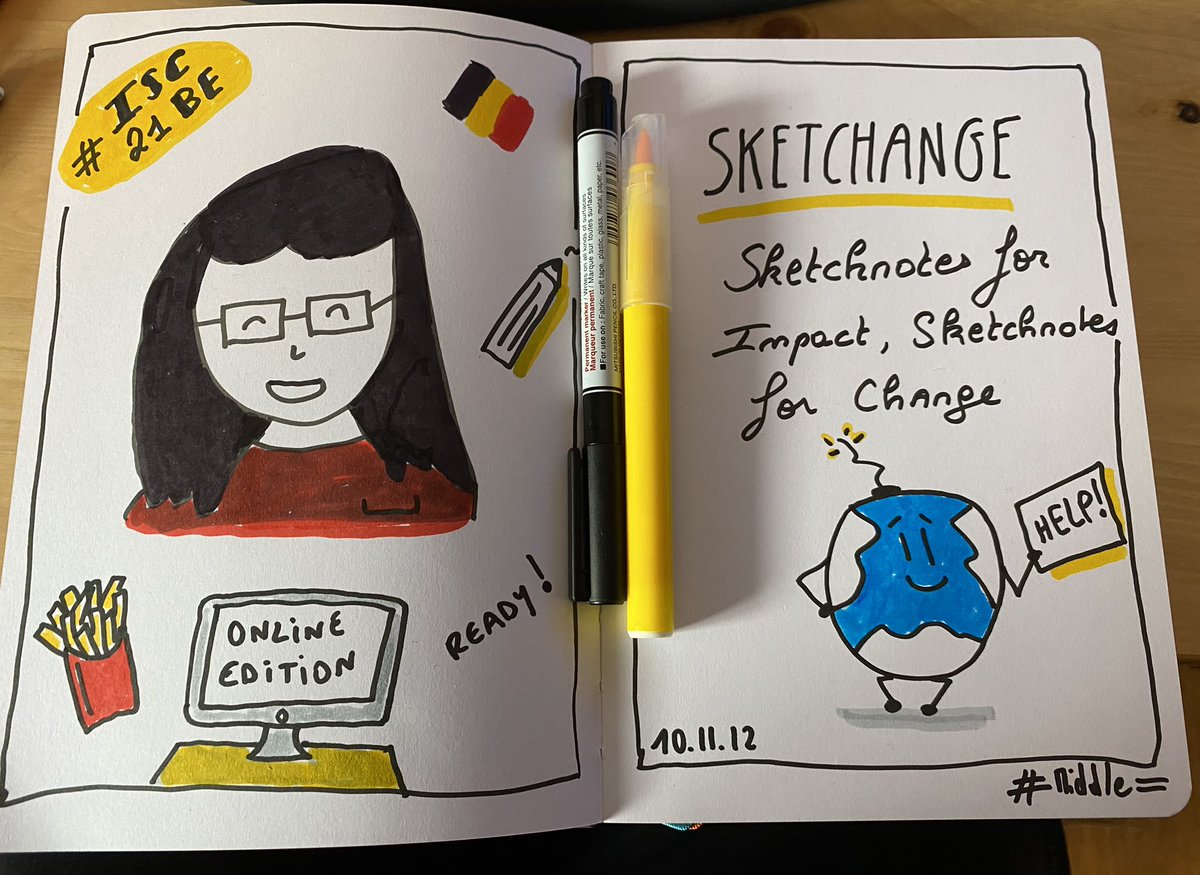 ISC
# 21 BE
READY!
ONLINE
EDITION
Permanent marker / Writes on all kinds of surfaces
Marqueur permanent / Marque sur toutes surfaces
■For use on : Fabric, craft tape, plastic, glass, metal, paper, etc.
MITSUBISHI PENCIL CO., LTD
SKETCHANGE
Sketchnotes for
Impact, Sketchnotes
for Change
HELP!
10.11.12